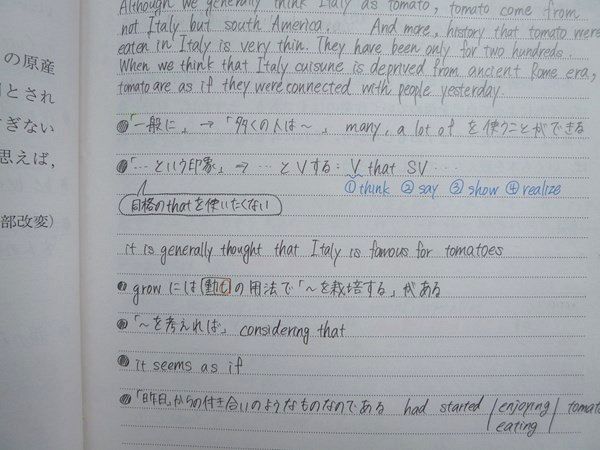 の原産
とされ
ぎない
思えば,
部改変)
Although we generally think Italy as tomato, tomato come from
not Italy but south America. And more, history that tomato were
eaten in Italy is very thin. They have been only for two hundreds.
When we think that Italy cuisune is deprived from ancient Rome era,
tomato are as if they were connected with people yesterday.
「一般に」→「多くの人は~」many, a lot of を使うことができる
「…という印象」→ …とVする: V that SV…
① think ② say ③ show ④ realize
同格のthatを使いたくない
it is generally thought that Italy is famous for tomatoes
growには動詞の用法で「~を栽培する」がある
「~を考えれば」considering that
it seems as if
「昨日」からの付き合いのようなものなのである had started enjoying tomato
eating